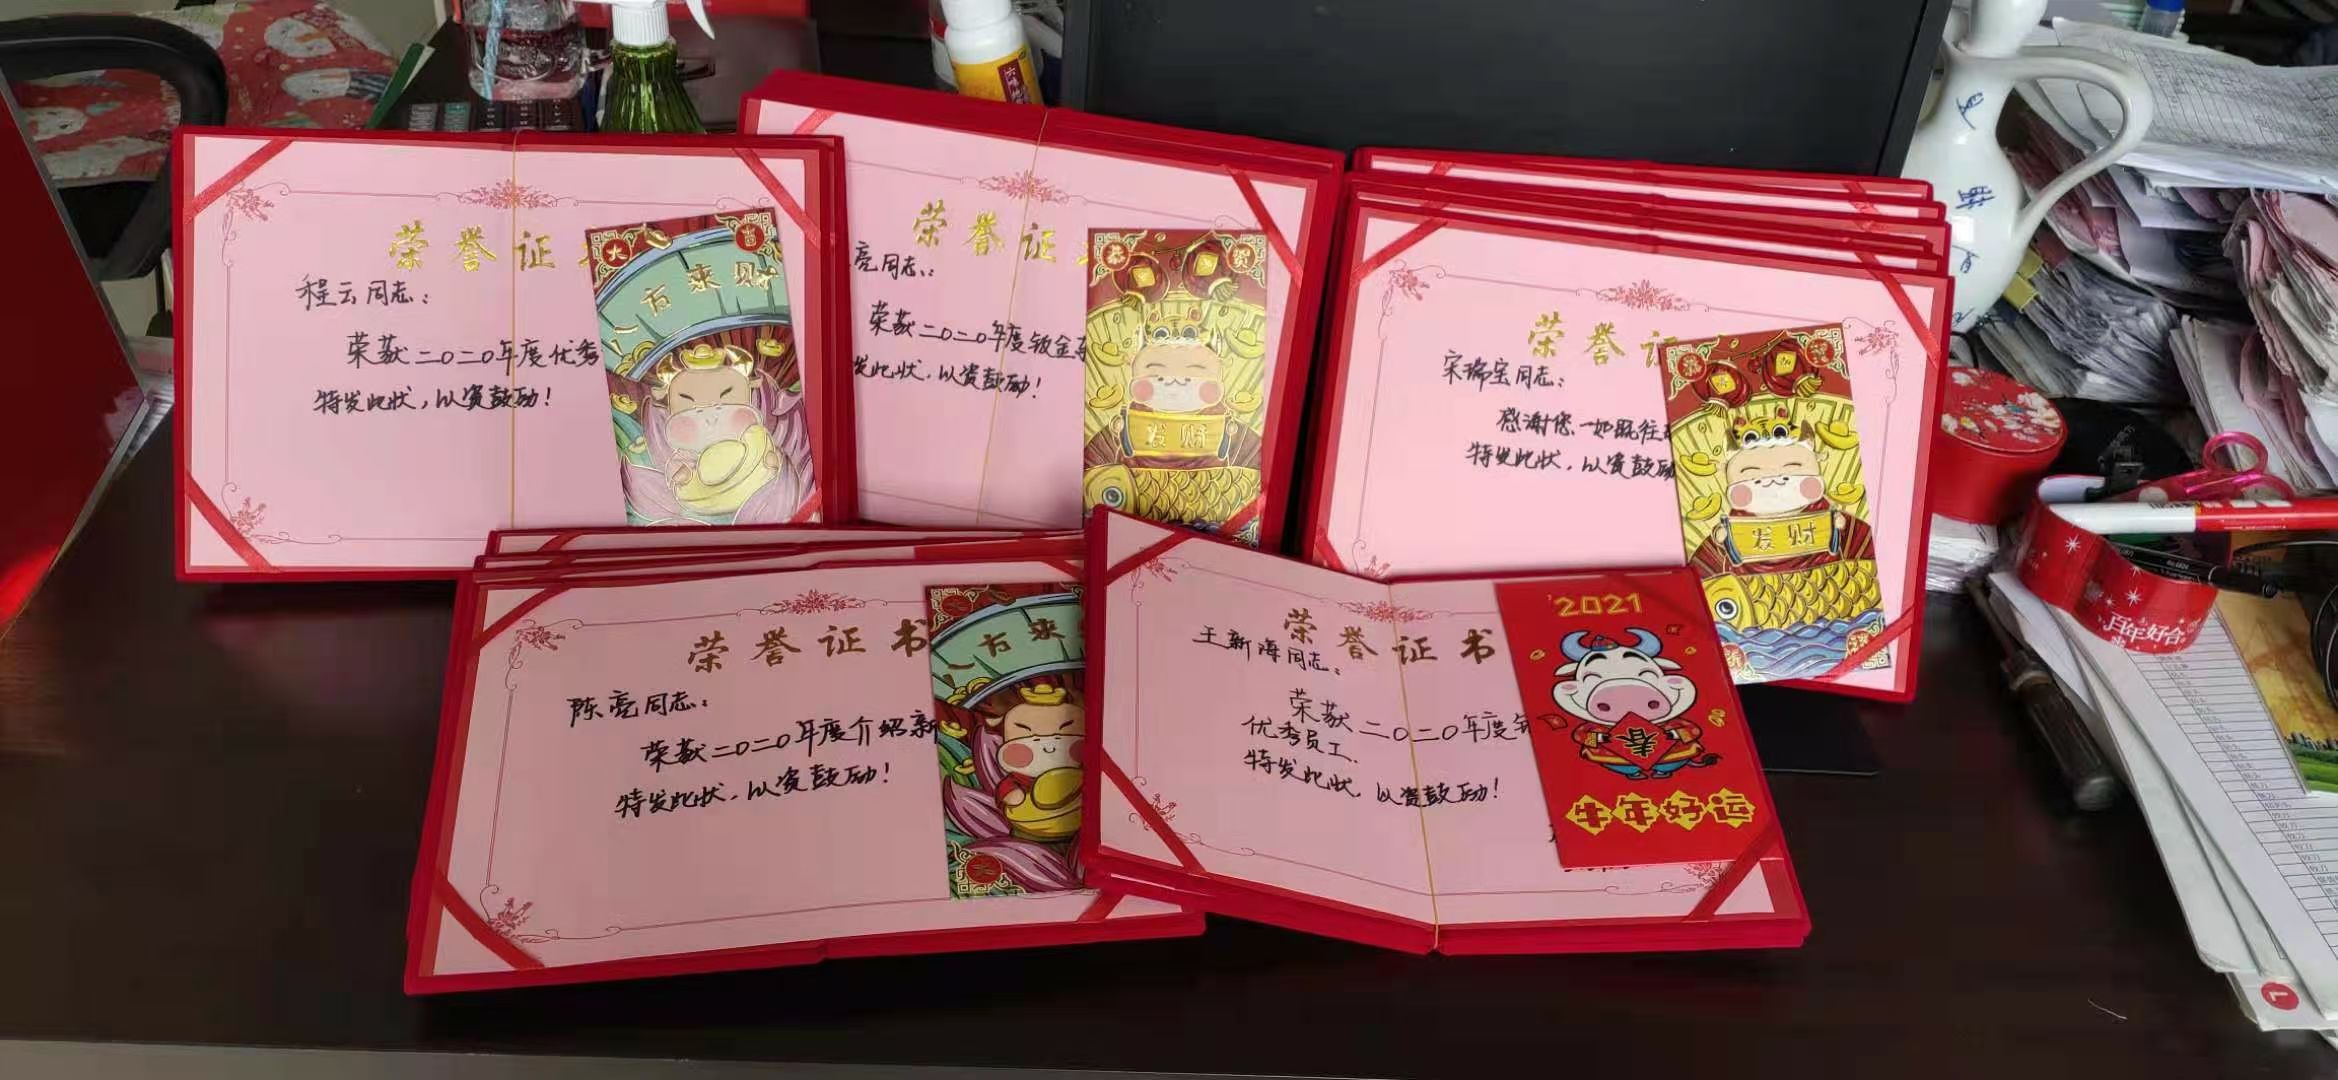 荣誉证
程云同志：
荣获二〇二〇年度优秀
特发此状，以资鼓励！
大吉
八方来财
荣誉证
亮同志：
荣获二〇二〇年度钣金
发此状，以资鼓励！
恭贺
发财
荣誉证
宋瑞宝同志：
感谢您一如既往
特发此状，以资鼓励
发财
荣誉证书
陈亮同志：
荣获二〇二〇年度介绍新
特发此状，以资鼓励！
八方来
荣誉证书
王新海同志：
荣获二〇二〇年度
优秀员工.
特发此状，以资鼓励！
2021
春
牛年好运
六味地
百年好合